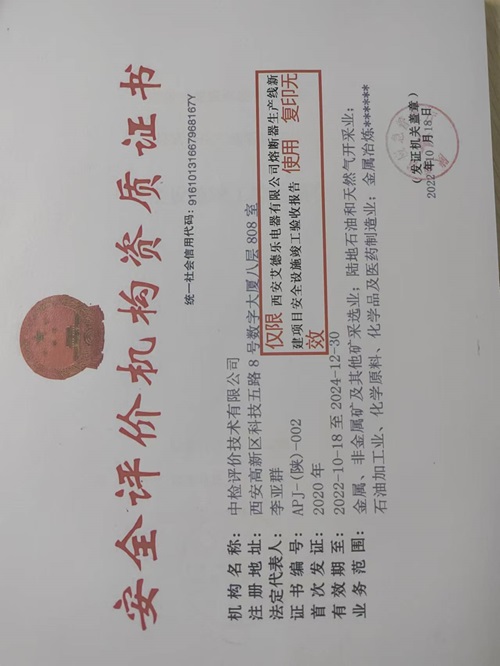 安全评价机构资质证书
统一社会信用代码：91610131667968167Y
机构名称：中检评价技术有限公司
注册地址：西安高新区科技五路8号数字大厦八层808室
法定代表人：李亚群
证书编号：APJ-(陕)-002
首次发证：2020年
有效期至：2022-10-18至2024-12-30
业务范围：金属、非金属矿及其他矿采选业；陆地石油和天然气开采业；
石油加工业、化学原料、化学品及医药制造业；金属冶炼*****
仅限西安艾德乐电器有限公司熔断器生产线新
建项目安全设施竣工验收报告使用 复印无
效
（发证机关盖章）
2022年10月18日